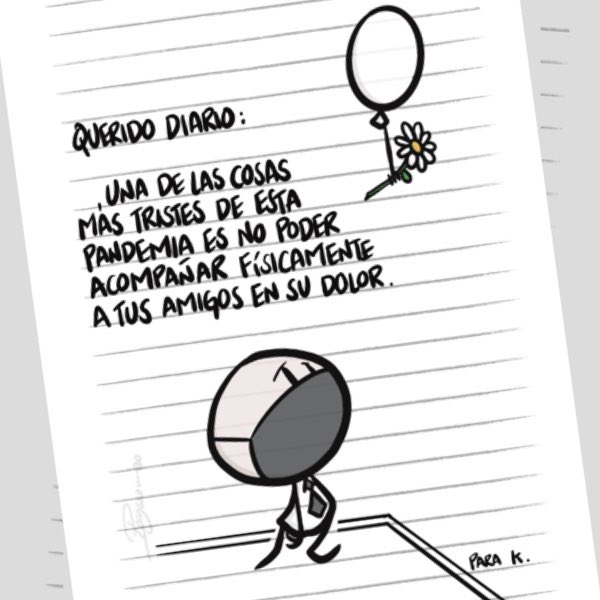 QUERIDO DIARIO:
UNA DE LAS COSAS
MÁS TRISTES DE ESTA
PANDEMIA ES NO PODER
ACOMPAÑAR FÍSICAMENTE
A TUS AMIGOS EN SU DOLOR.
PARA K.